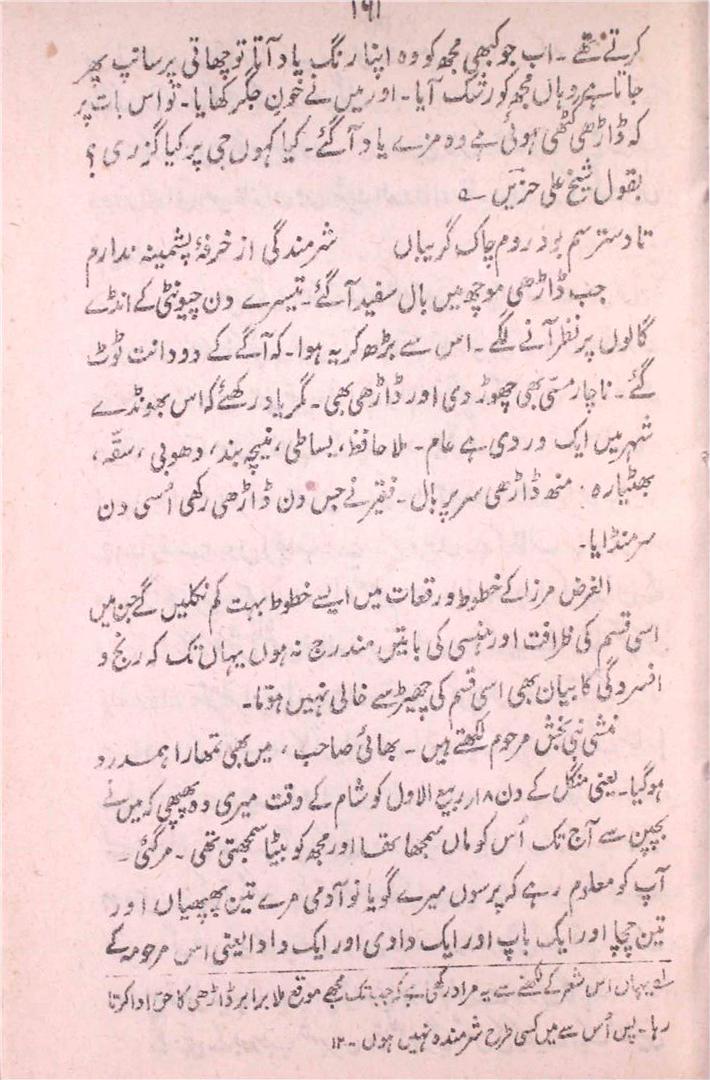 ۱۶۱
کرتے تھے ۔ اب جو کبھی مجھ کو وہ اپنا رنگ یاد آتا تو چھاتی پر سانپ پھر
جاتا ہے وہاں مجھ کو رشک آیا ۔ اور میں نے خون جگر کھایا ۔ تو اس بات پر
کہ ڈاڑھی گھٹی ہوئی ہے وہ مزے یاد آگئے ۔ کیا کہوں جی پر کیا گزری ؟
بقول شیخ علی حزیں ؎
تا دسترسم بود روم چاک گریباں شرمندگی از خرقۂ پشمینہ ندارم
جب ڈاڑھی موچھ میں بال سفید آگئے ۔ تیسرے دن چیونٹی کے انڈے
گالوں پر نظر آنے لگے ۔ اس سے بڑھ کر یہ ہوا ۔ کہ آگے کے دو دانت ٹوٹ
گئے ۔ ناچار مسّی بھی چھوڑ دی اور ڈاڑھی بھی ۔ مگر یاد رکھئے کہ اس بھونڈے
شہر میں ایک وردی ہے عام ۔ ملا حافظ، بساطی، نیچہ بند، دھوبی، سقّہ،
بھٹیارہ ۔ منھ ڈاڑھی سر پر بال ۔ فقیر نے جس دن ڈاڑھی رکھی اُسی دن
سر منڈایا ۔
الغرض مرزا کے خطوط و رقعات میں ایسے خطوط بہت کم نکلیں گے جن میں
اسی قسم کی ظرافت اور ہنسی کی باتیں مندرج نہ ہوں یہاں تک کہ رنج و
افسردگی کا بیان بھی اسی قسم کی چھیڑ سے خالی نہیں ہوتا ۔
منشی نبی بخش مرحوم لکھتے ہیں ۔ بھائی صاحب ، میں بھی تمھارا ہمدرد
ہوگیا ۔ یعنی منگل کے دن ۱۸ ربیع الاول کو شام کے وقت میری وہ پھپھی کہ میں نے
بچپن سے آج تک اُس کو ماں سمجھا تھا اور مجھ کو بیٹا سمجھتی تھی ۔ مرگئی ۔
آپ کو معلوم رہے کہ پرسوں میرے گویا نو آدمی مرے تین پھپھیاں اور
تین چچا اور ایک باپ اور ایک دادی اور ایک دادا یعنی اس مرحومہ کے
یہاں اس شعر کے لکھنے سے یہ مراد رکھی ہے کہ جب تک مجھے موقع ملا برابر ڈاڑھی کا حق ادا کرتا
رہا ۔ پس اُس سے میں کسی طرح شرمندہ نہیں ہوں ۔ ۱۲